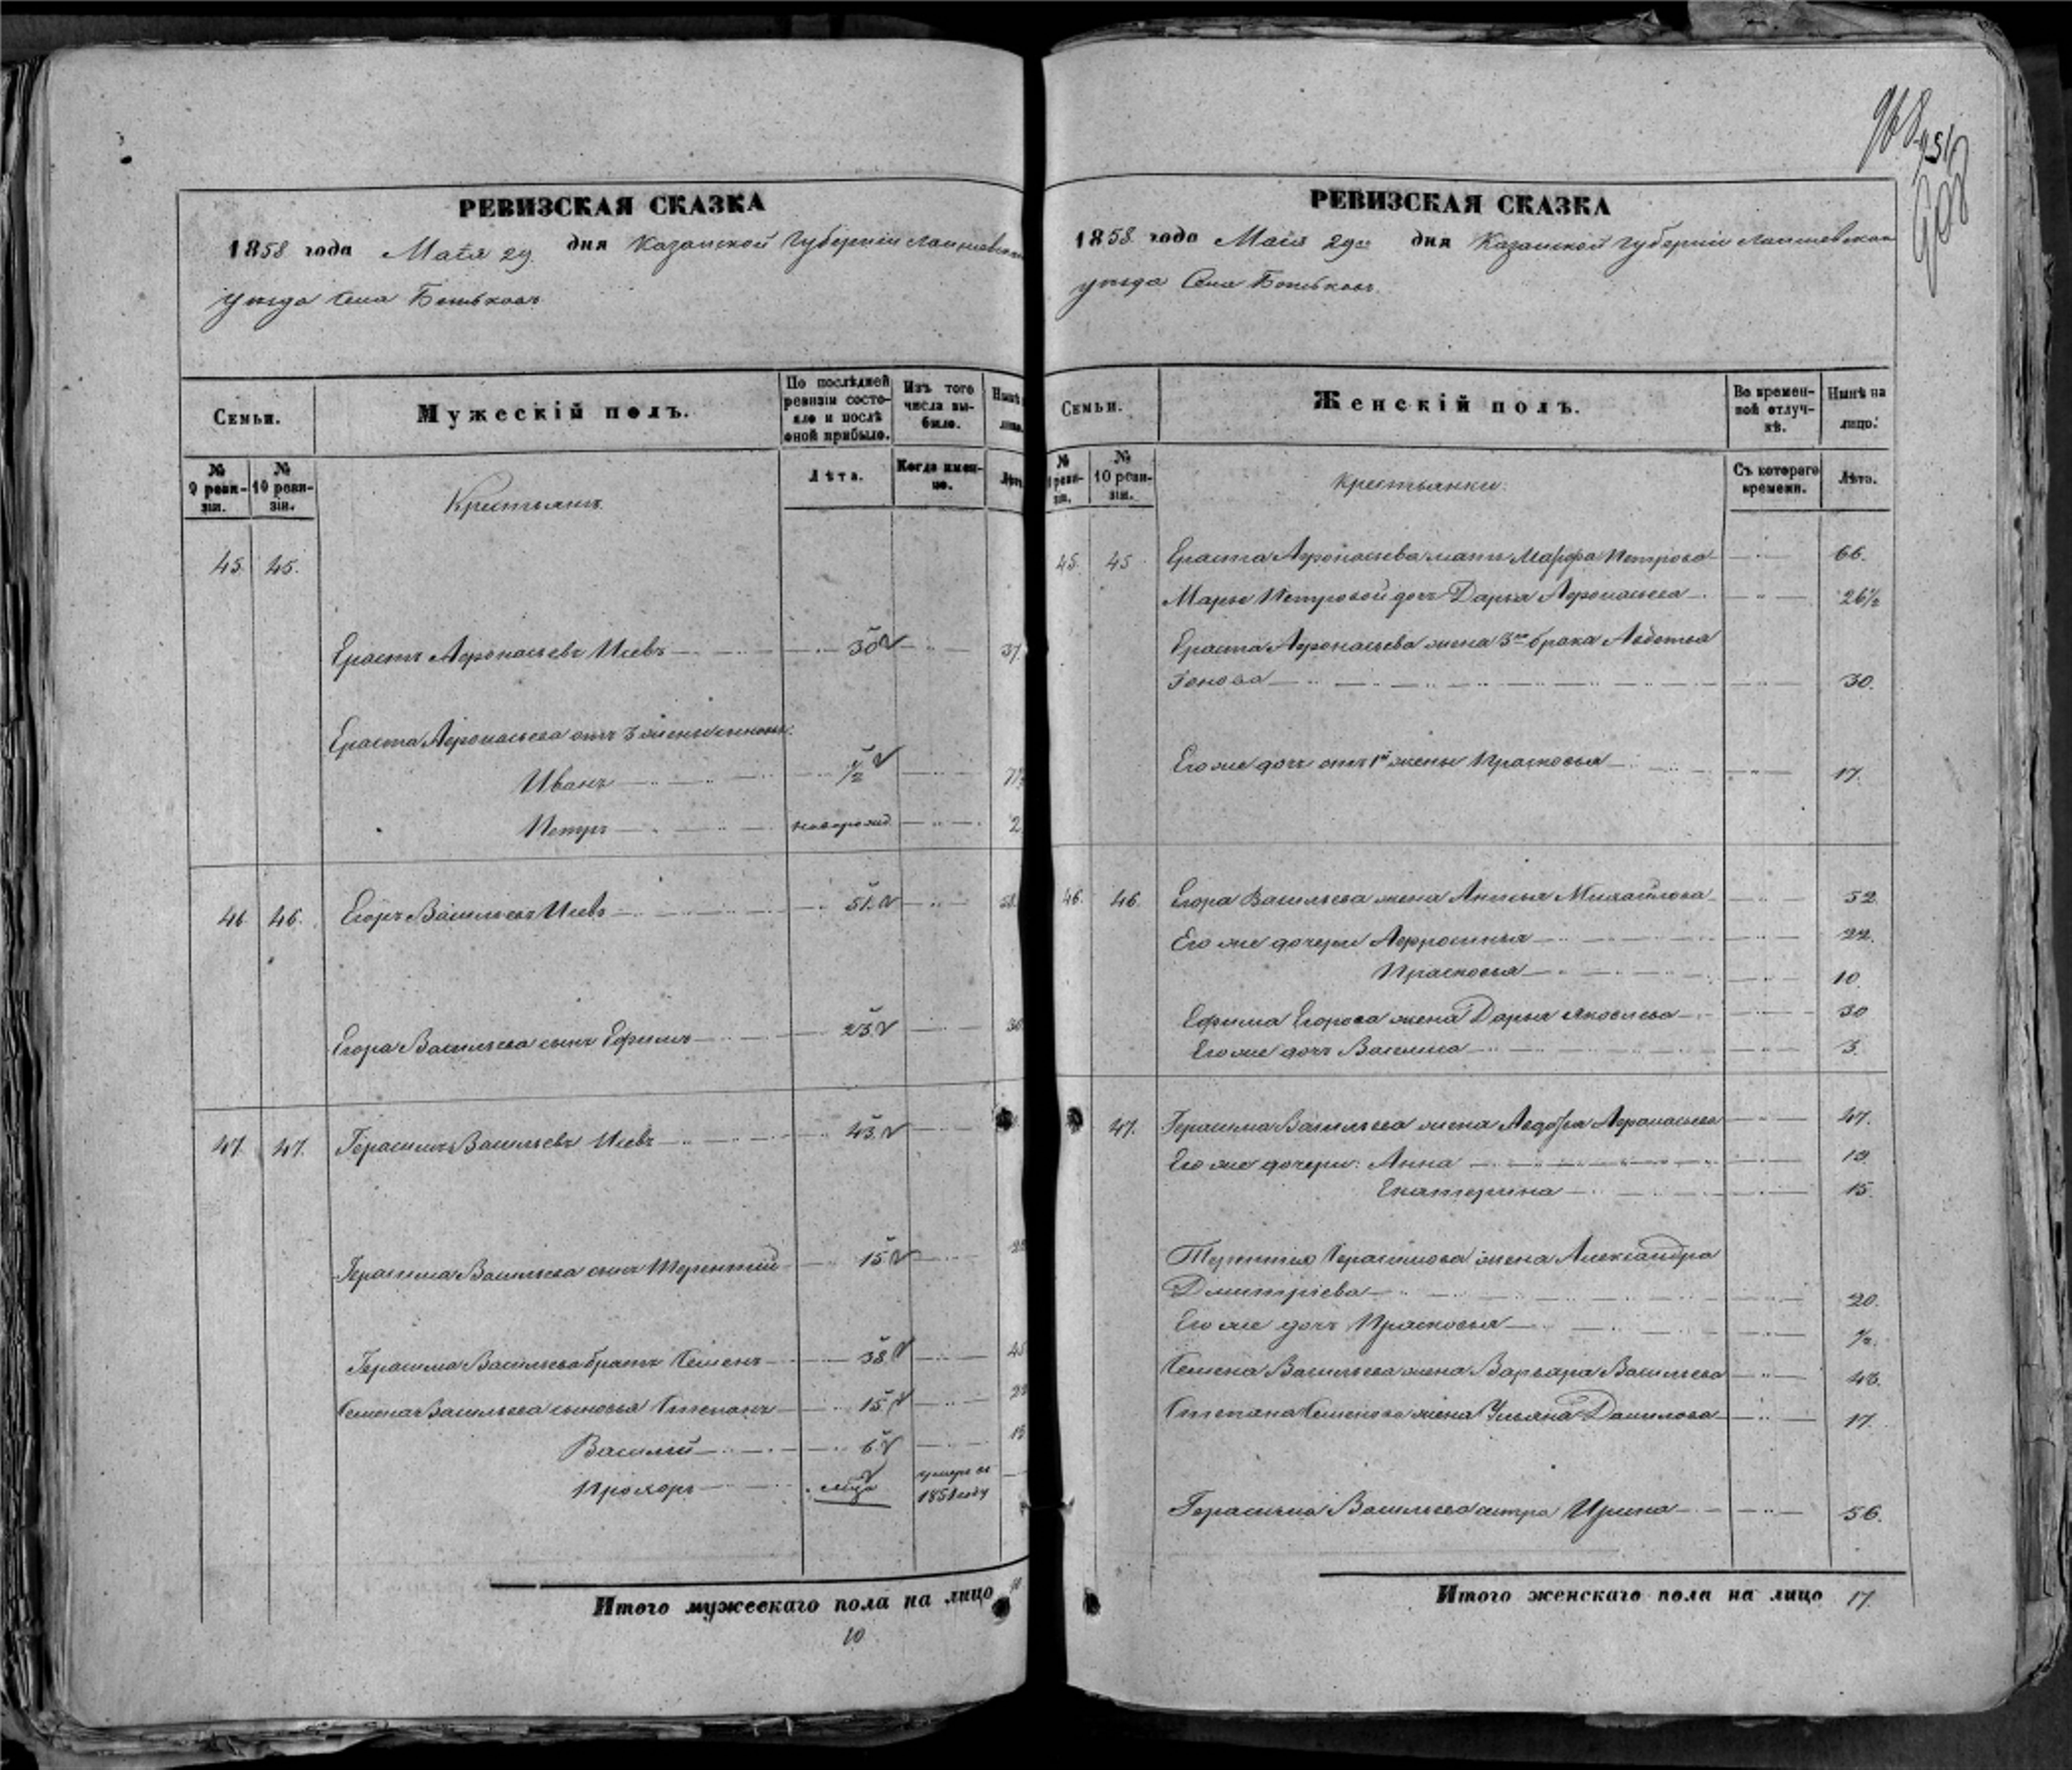 968
951
608
РЕВИЗСКАЯ СКАЗКА
1858 года Маія 29 дня Казанской Губерніи Лаишевскаго
уѣзда Села
Семьи.
Мужескій полъ.
По послѣдней ревизіи состояло и послѣ оной прибыло.
Изъ того числа выбыло.
Нынѣ лицо.
№ 9 ревизіи.
№ 10 ревизіи.
Крестьянъ
Лѣта.
Когда именно.
Лѣта
45. 45.
Ерастъ Афонасьевъ Иевъ 30 37.
Ераста Афонасьева отъ 3 жены сыновья:
Иванъ ½ 7½
Петръ новорожд 2
46 46. Егоръ Васильевъ Иевъ 51. 58.
Егора Васильева сынъ Ефимъ 23. 30
47. 47. Герасимъ Васильевъ Иевъ 43.
Герасима Васильева сынъ Терентій 15. 22
Герасима Васильева братъ Семенъ 38. 45
Семена Васильева сыновья Степанъ 15 22
Василій 6. 13
Прохоръ умеръ въ 1851 году
Итого мужескаго пола на лицо 10
10
РЕВИЗСКАЯ СКАЗКА
1858 года Маія 29го дня Казанской Губерніи Лаишевскаго
уѣзда Села
Семьи.
Женскій полъ.
Во временной отлучкѣ.
Нынѣ на лицо.
№ 9 ревизіи.
№ 10 ревизіи.
Крестьянки.
Съ котораго времени.
Лѣта.
45. 45 Ераста Афонасьева мать Марфа Петрова 66.
Марфы Петровой дочь Дарья Афонасьева 26½
Ераста Афонасьева жена 3го брака Авдотья
30.
Его же дочь отъ 1й жены Прасковья 17.
46. 46. Егора Васильева жена Анисья Михайлова 52.
Его же дочери Афросинья 22.
Прасковья 10.
Ефима Егорова жена Дарья Яковлева 30
Его же дочь Василиса 3.
47. Герасима Васильева жена Федосья Афонасьева 47.
Его же дочери: Анна 19.
Екатерина 15.
Терентія Герасимова жена Александра
Дмитріева 20.
Его же дочь Прасковья ½.
Семена Васильева жена Варвара Васильева 43.
Степана Семенова жена Ульяна Данилова 17.
Герасима Васильева сестра Ирина 56.
Итого женскаго пола на лицо 17.